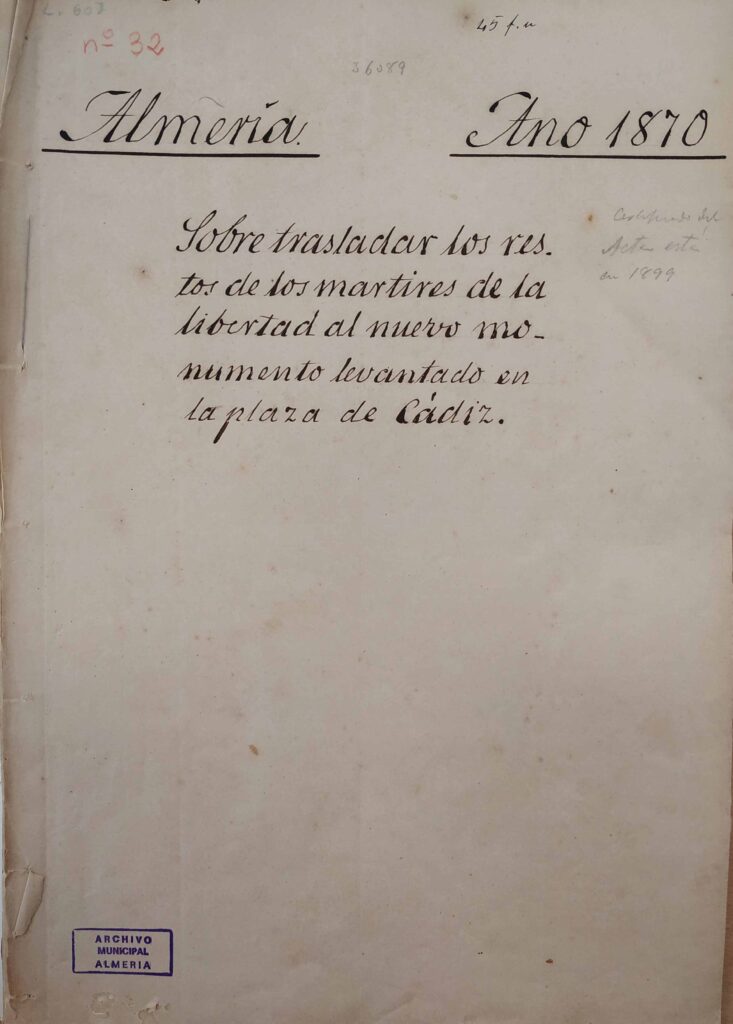 L. 607
nº 32
45 f. u
36089
Almería.
Año 1870
Sobre trasladar los res-
tos de los martires de la
libertad al nuevo mo-
numento levantado en
la plaza de Cádiz.
Certificado del
Acta está
en 1899
ARCHIVO
MUNICIPAL
ALMERIA